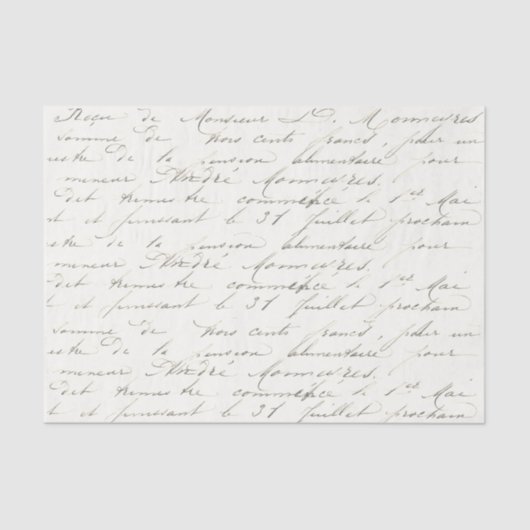 Reçu de Monsieur D. Monnuyres
somme de trois cents francs, pour un
estre de la pension alimentaire pour
mineur André Monnuyres.
Dit trimestre commence le 1er Mai
t et finissant le 31 Juillet prochain
estre de la pension alimentaire pour
mineur André Monnuyres.
Dit trimestre commence le 1er Mai
t et finissant le 31 Juillet prochain
somme de trois cents francs, pour un
estre de la pension alimentaire pour
mineur André Monnuyres.
Dit trimestre commence le 1er Mai
t et finissant le 31 Juillet prochain